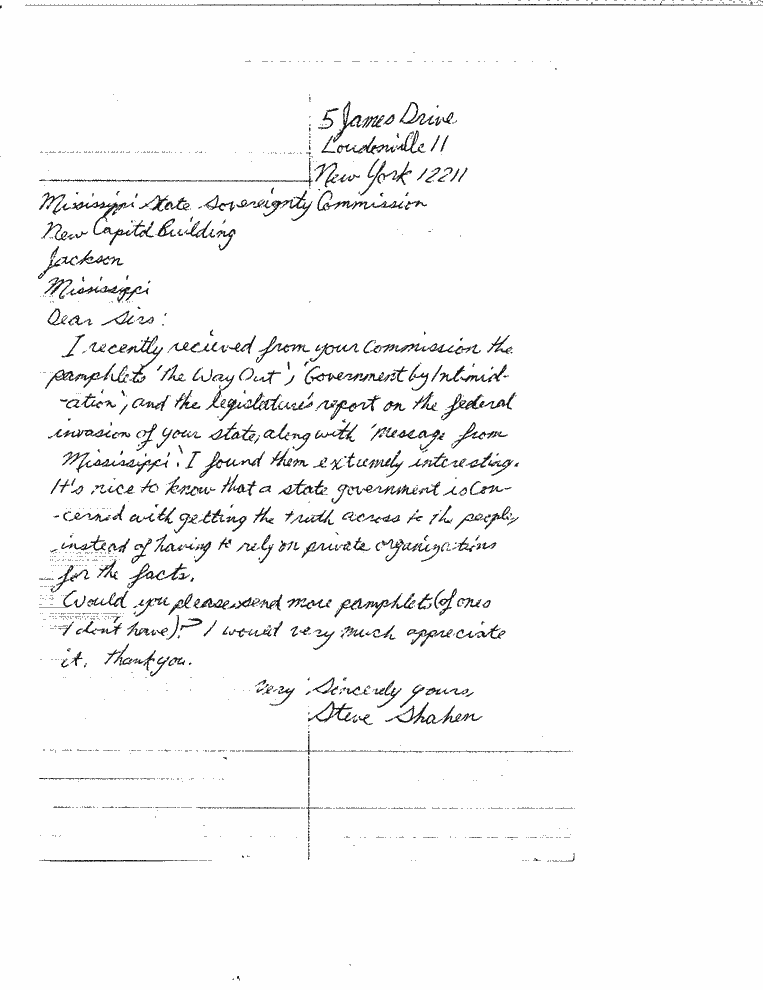 5 James Drive
Loudonville 11
New York 12211
Mississippi State Sovereignty Commission
New Capitol Building
Jackson
Mississippi
Dear Sirs:
I recently recieved from your Commission the
pamphlets 'The Way Out', 'Government by Intimid-
-ation', and the legislature's report on the federal
invasion of your state, along with 'Message from
Mississippi'. I found them extremely interesting.
It's nice to know that a state government is con-
-cerned with getting the truth across to the people,
instead of having to rely on private organizations
for the facts.
Would you please send more pamphlets (of ones
I don't have)? I would very much appreciate
it. Thank you.
Very Sincerely yours,
Steve Shahen